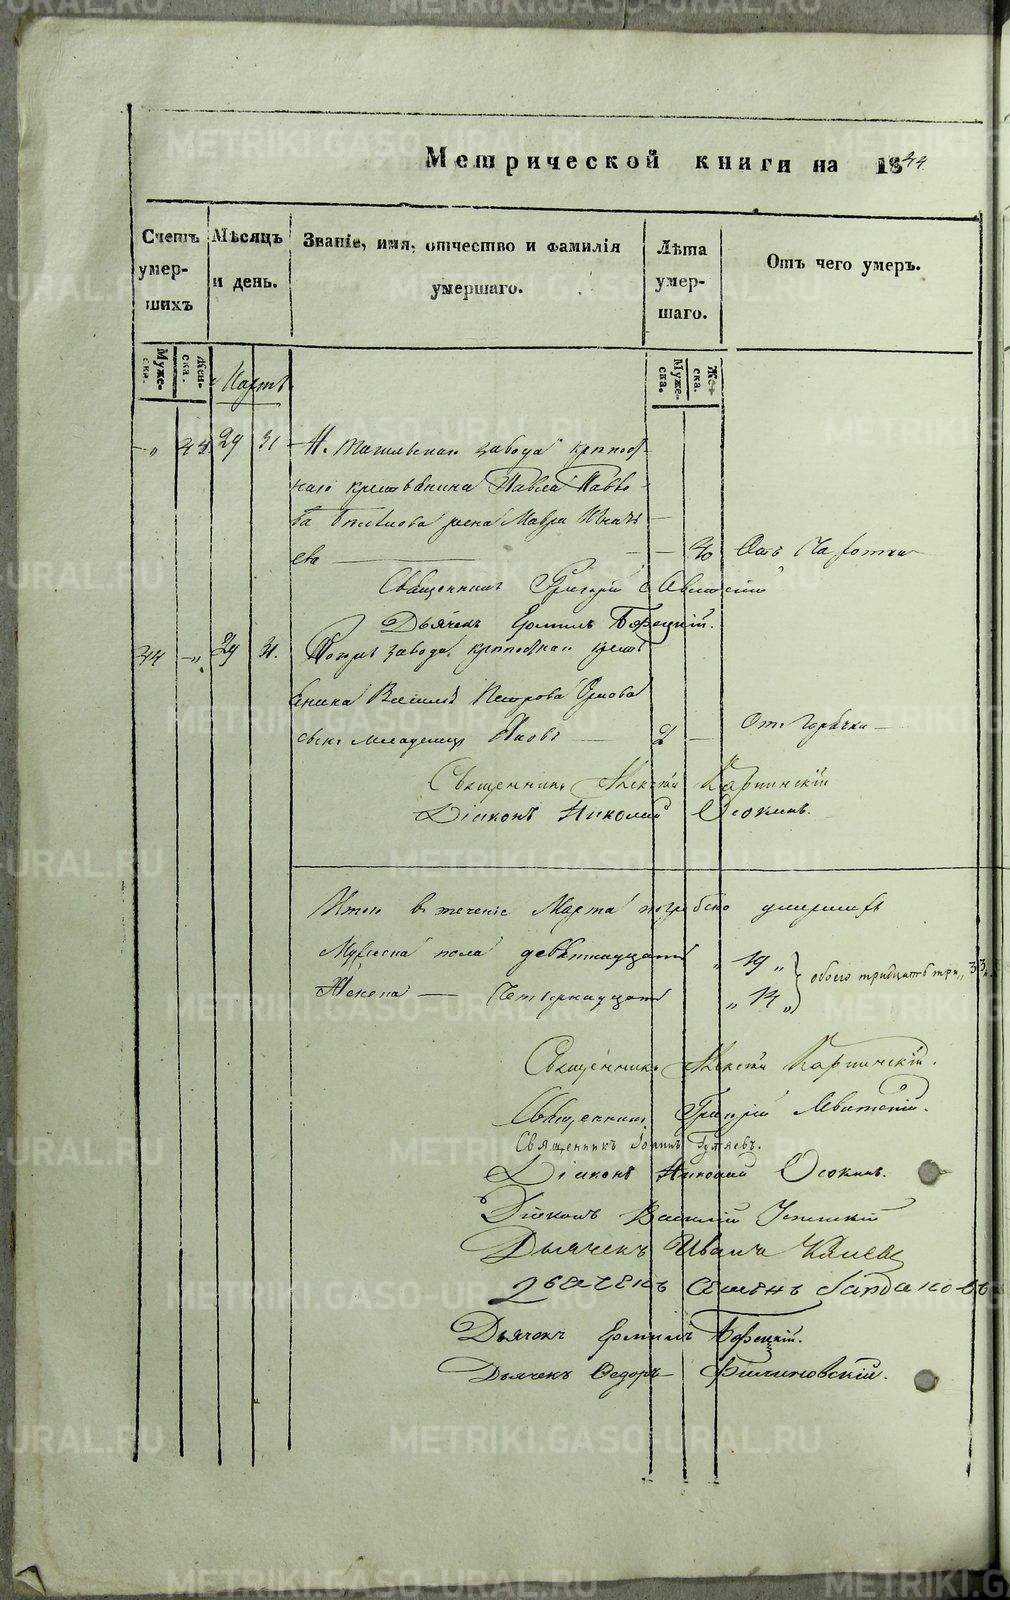 METRIKI.GASO-URAL.RU
Метрической книги на 1844
Счетъ умерших Мѣсяцъ и день. Званіе, имя, отчество и фамилія умершаго. Лѣта умершаго. Отъ чего умеръ.
Мужеска. Женска. Мартъ Мужеска. Женска.
29 31 Н. Тагильскаго завода крѣпост
наго крестьянина Павла Павло
ва жена Мавра Игнать
ева 40 Отъ Чахотки
Священникъ Григорій Левитскій
Дьячекъ Ермилъ Борецкій.
34 29 31. Тогоже завода крѣпостнаго крест
янина Василья Петрова
сынъ младенецъ Яковъ 2 Отъ Горячки
Священникъ Алексѣй Карпинскій
Діаконъ Николай Осокинъ.
Итого въ теченіе Марта погребено умершихъ
Мужеска пола девятнадцать „ 19 „
Женска — Четырнадцать „ 14 „ обоего тридцать три „ 33 „
Священникъ Алексѣй Карпинскій.
Священникъ Григорій Левитскій.
Священникъ Іоаннъ
Діаконъ Николай Осокинъ.
Діаконъ Василій Успенскій
Дьячекъ Иванъ
Дьячекъ Семенъ
Дьячекъ Ермилъ Борецкій.
Дьячекъ Ѳедоръ